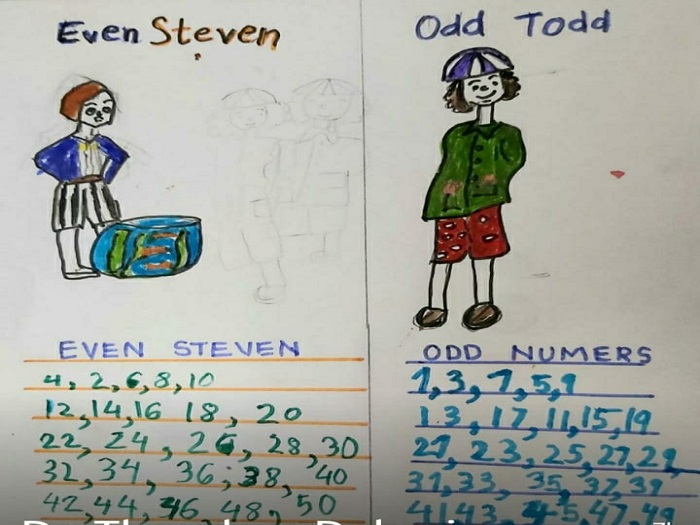 Even Steven
Odd Todd
EVEN STEVEN
4, 2, 6, 8, 10
12, 14, 16 18, 20
22, 24, 26, 28, 30
32, 34, 36; 38, 40
42, 44, 46 48, 50
ODD NUMERS
1, 3, 7, 5, 9
13, 17, 11, 15, 19
21, 23, 25, 27, 29
31, 33, 35, 37, 39
41 43, 45, 47, 49